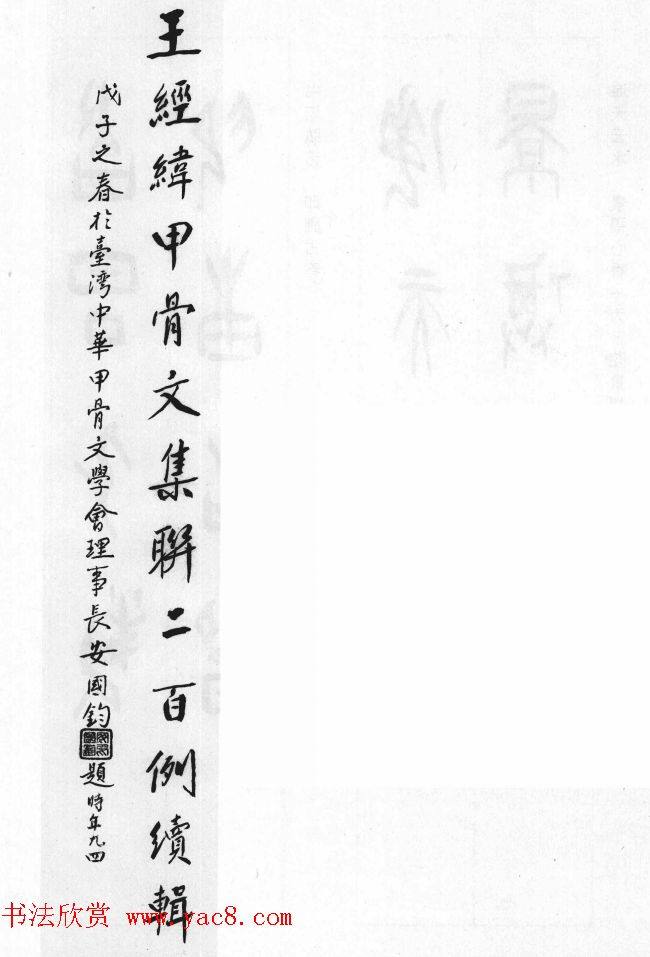 王經緯甲骨文集聯二百例續輯
戊子之春於臺灣中華甲骨文學會理事長安國鈞題時年九四
书法欣赏 www.yac8.com